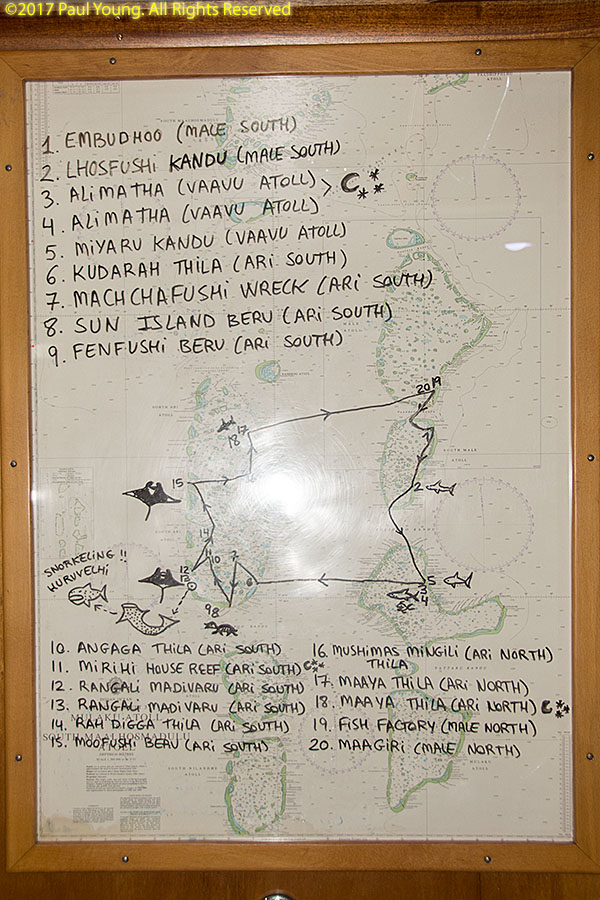 ©2017 Paul Young. All Rights Reserved
1. EMBUDHOO (MALE SOUTH)
2. LHOSFUSHI KANDU (MALE SOUTH)
3. ALIMATHA (VAAVU ATOLL)
4. ALIMATHA (VAAVU ATOLL)
5. MIYARU KANDU (VAAVU ATOLL)
6. KUDARAH THILA (ARI SOUTH)
7. MACHCHAFUSHI WRECK (ARI SOUTH)
8. SUN ISLAND BERU (ARI SOUTH)
9. FENFUSHI BERU (ARI SOUTH)
20 19
17
18
SOUTH MALE
ATOLL
15
2
14
11
10
7
6
12
13
5
3
4
98
SNORKELING !!
HURUVELHI
10. ANGAGA THILA (ARI SOUTH)
11. MIRIHI HOUSE REEF (ARI SOUTH)
12. RANGALI MADIVARU (ARI SOUTH)
13. RANGALI MADIVARU (ARI SOUTH)
14. RAH DIGGA THILA (ARI SOUTH)
15. MOOFUSHI BERU (ARI SOUTH)
16. MUSHIMAS MINGILI (ARI NORTH)
THILA
17. MAAYA THILA (ARI NORTH)
18. MAAYA THILA (ARI NORTH)
19. FISH FACTORY (MALE NORTH)
20. MAAGIRI (MALE NORTH)
SOUTH MAALHOSMADULU
SOUTH NILANDHE
ATOLL